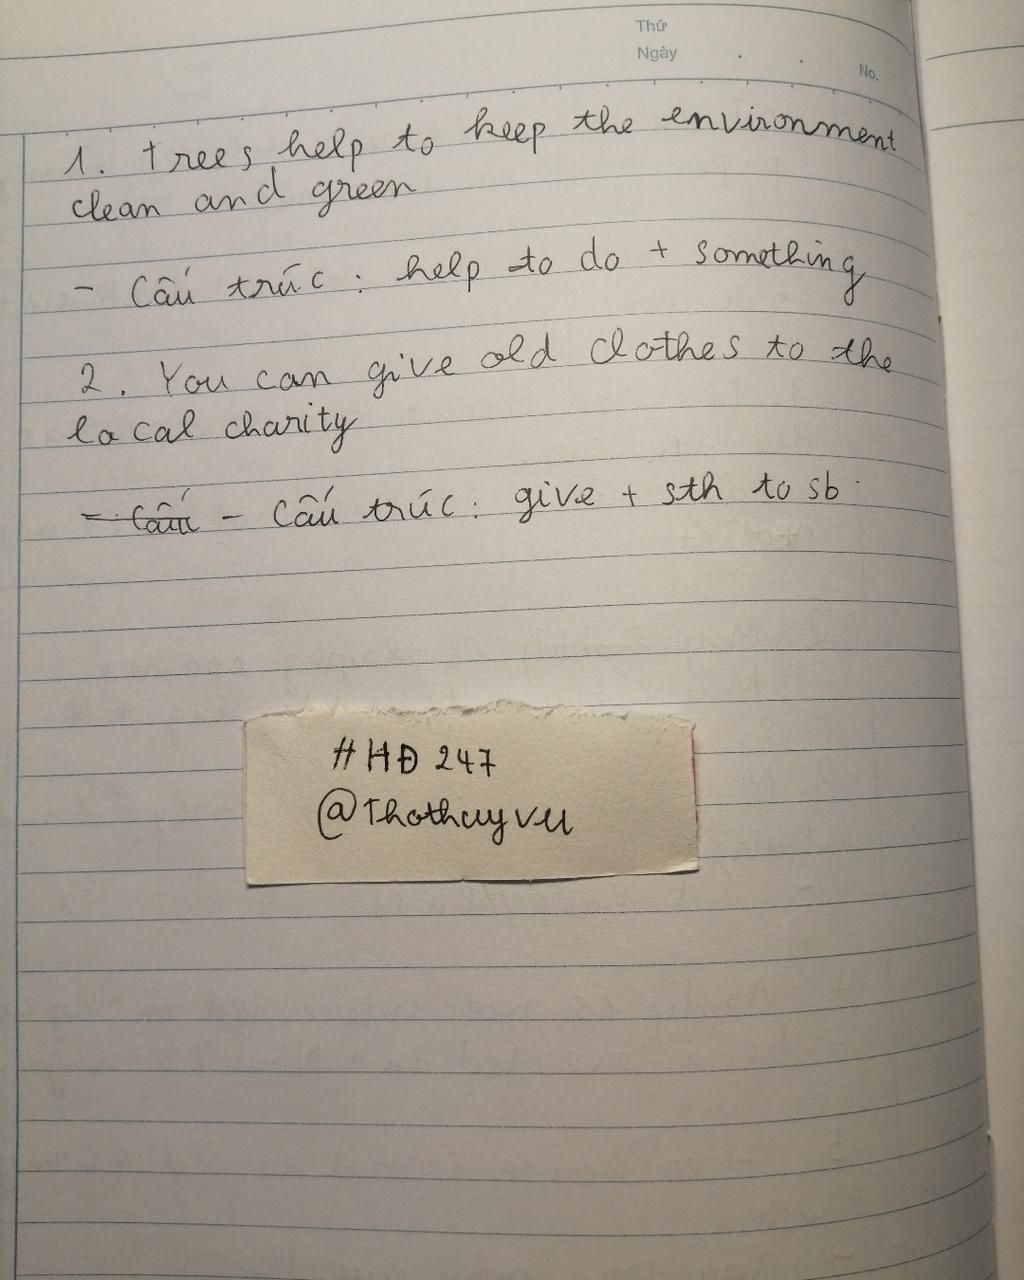 Thứ
Ngày . .
No.
1. Trees help to keep the environment
clean and green
- Cấu trúc : help to do + something
2. You can give old clothes to the
local charity
- Cấu - Cấu trúc : give + sth to sb .
#HĐ 247
@Thothuyvu